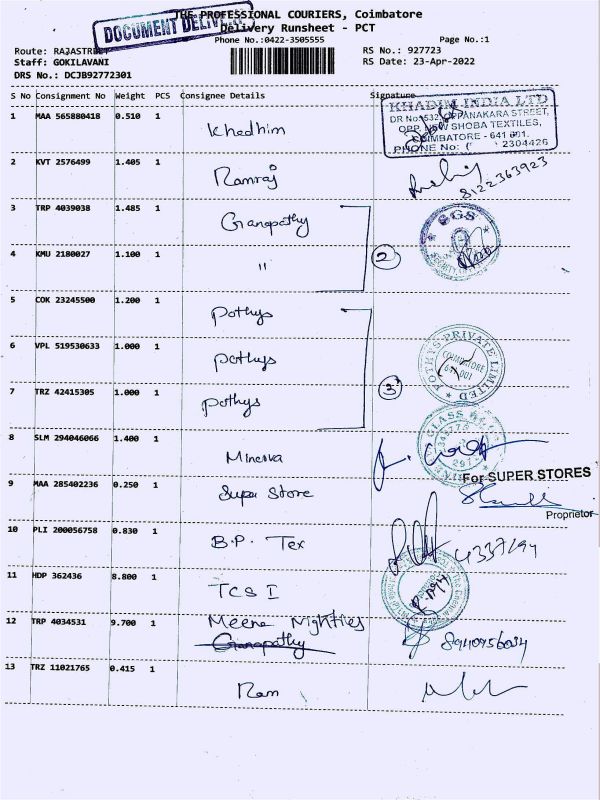 DOCUMENT DELIVERED
THE PROFESSIONAL COURIERS, Coimbatore
Delivery Runsheet - PCT
Phone No.:0422-3505555
Page No.:1
Route: RAJASTREET
RS No.: 927723
Staff: GOKILAVANI
RS Date: 23-Apr-2022
DRS No.: DCJB92772301
S No Consignment No Weight PCS Consignee Details Signature
1 MAA 565880418 0.510 1 Khadhim
KHADIM INDIA LTD
DR No:532, OPPANAKARA STREET,
OPP. NEW SHOBA TEXTILES,
COIMBATORE - 641 001.
PHONE No: 2304426
2 KVT 2576499 1.405 1 Ramraj
8122363923
3 TRP 4039038 1.485 1 Ganapathy
SGS
4 KMU 2180027 1.100 1 "
2
5 COK 23245500 1.200 1 pothys
6 VPL 519530633 1.000 1 pothys
POTHYS PRIVATE LIMITED
COIMBATORE
641 001
7 TRZ 42415305 1.000 1 pothys
3
8 SLM 294046066 1.400 1 Minerva
GLASS
9 MAA 285402236 0.250 1 Super Store
For SUPER STORES
Proprietor
10 PLI 200056758 0.830 1 B.P. Tex
11 HDP 362436 8.800 1 TCS I
12 TRP 4034531 9.700 1 Meena Nighties
Ganapathy
8940956034
13 TRZ 11021765 0.415 1 Ram